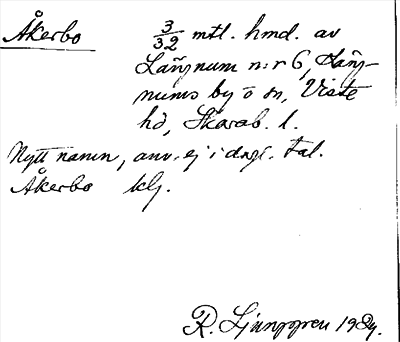 Åkerbo 3/32 mtl. hmd. av
Långnum n:r 6, Lång-
nums by o sn, Viste
hd, Skarab. l.
Nytt namn, anv. ej i dagl. tal.
Åkerbo klg.
R. Ljunggren 1929.